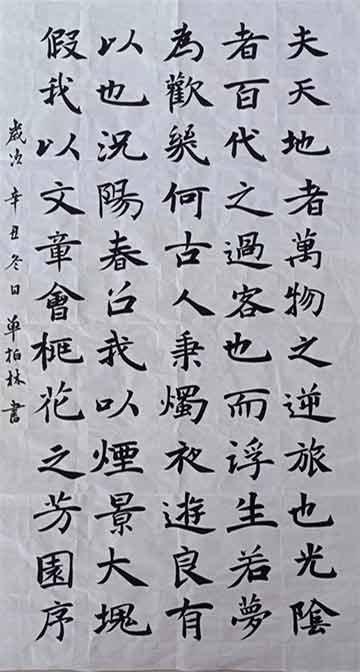 夫天地者萬物之逆旅也光陰
者百代之過客也而浮生若夢
為歡幾何古人秉燭夜遊良有
以也況陽春召我以煙景大塊
假我以文章會桃花之芳園序
歲次辛丑冬日單柏林書